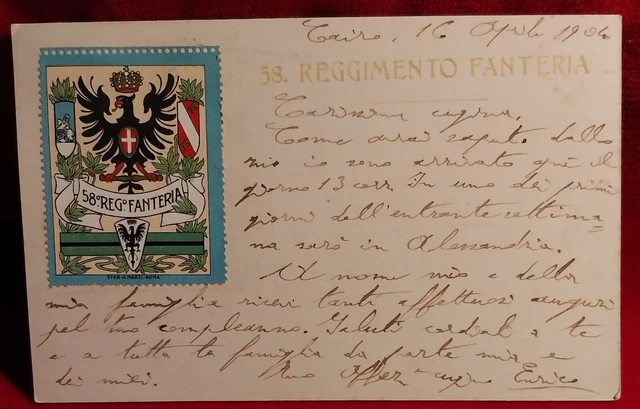 Cairo, 16 Aprile 1906
58. REGGIMENTO FANTERIA
Carissima cugina,
Come avrai saputo dallo
zio io sono arrivato qui il
giorno 13 corr. In uno dei primi
giorni dell'entrante settima-
na sarò in Alessandria.
A nome mio e della
mia famiglia ricevi tanti affettuosi auguri
pel tuo compleanno. Saluti cordiali a te
e a tutta la famiglia da parte mia e
dei miei. Tuo cugino Enrico
58° REG° FANTERIA
STAB. A. MARZI-ROMA